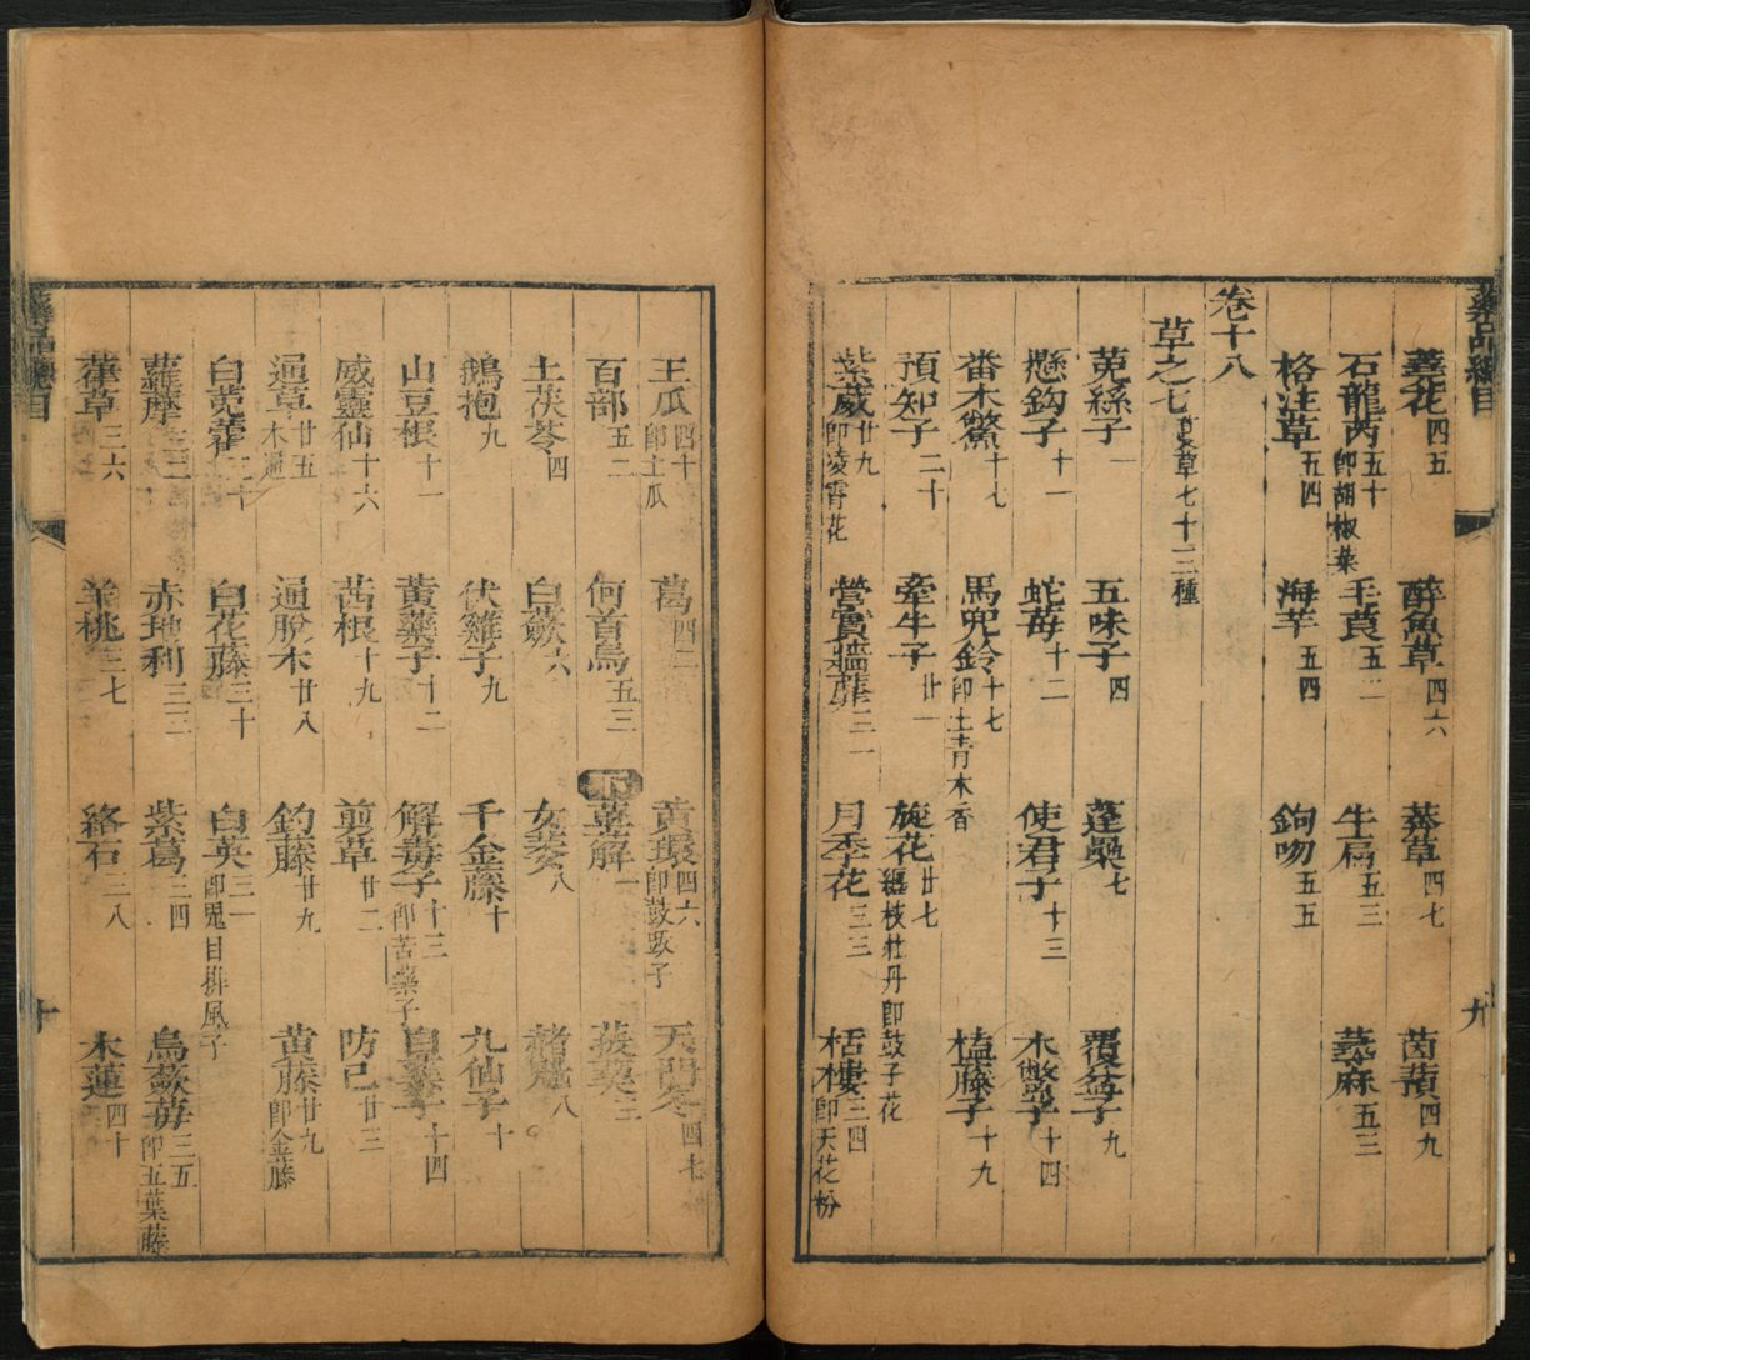 藥品總目
九
蕘花四五 醉魚草四六 莽草四七 茵蕷四九
石龍芮五十卽胡椒菜 毛茛五二 牛扁五三 蕁麻五三
格注草五四 海芋五四 鉤吻五五
卷十八
草之七 蔓草七十三種
菟絲子一 五味子四 蓬蘽七 覆盆子九
懸鈎子十一 蛇莓十二 使君子十三 木鱉子十四
番木鱉十七 馬兜鈴十七卽土青木香 榼藤子十九
預知子二十 牽牛子廿一 旋花廿七纏枝牡丹卽鼓子花
紫葳廿九卽凌霄花 營實牆蘼三一 月季花三三 栝樓三四卽天花粉
王瓜四十卽土瓜 葛四二 黃環四六卽鼓子 天門冬四七
百部五二 何首烏五三 下 萆薢一 菝葜三
土茯苓四 白蘞六 女萎八 赭魁八
鵝抱九 伏雞子九 千金藤十 九仙子十
山豆根十一 黃藥子十二 解毒子十三卽苦藥子 白藥子十四
威靈仙十六 茜根十九 剪草廿二 防己廿三
通草廿五木通 通脫木廿八 釣藤廿九 黃藤廿九卽金藤
白兔藿三十 白花藤三十 白英三一卽鬼目排風子
蘿藦三三 赤地利三三 紫葛三四 烏蘞莓三五卽五葉藤
葎草三六 羊桃三七 絡石三八 木蓮四十
藥品總目
十